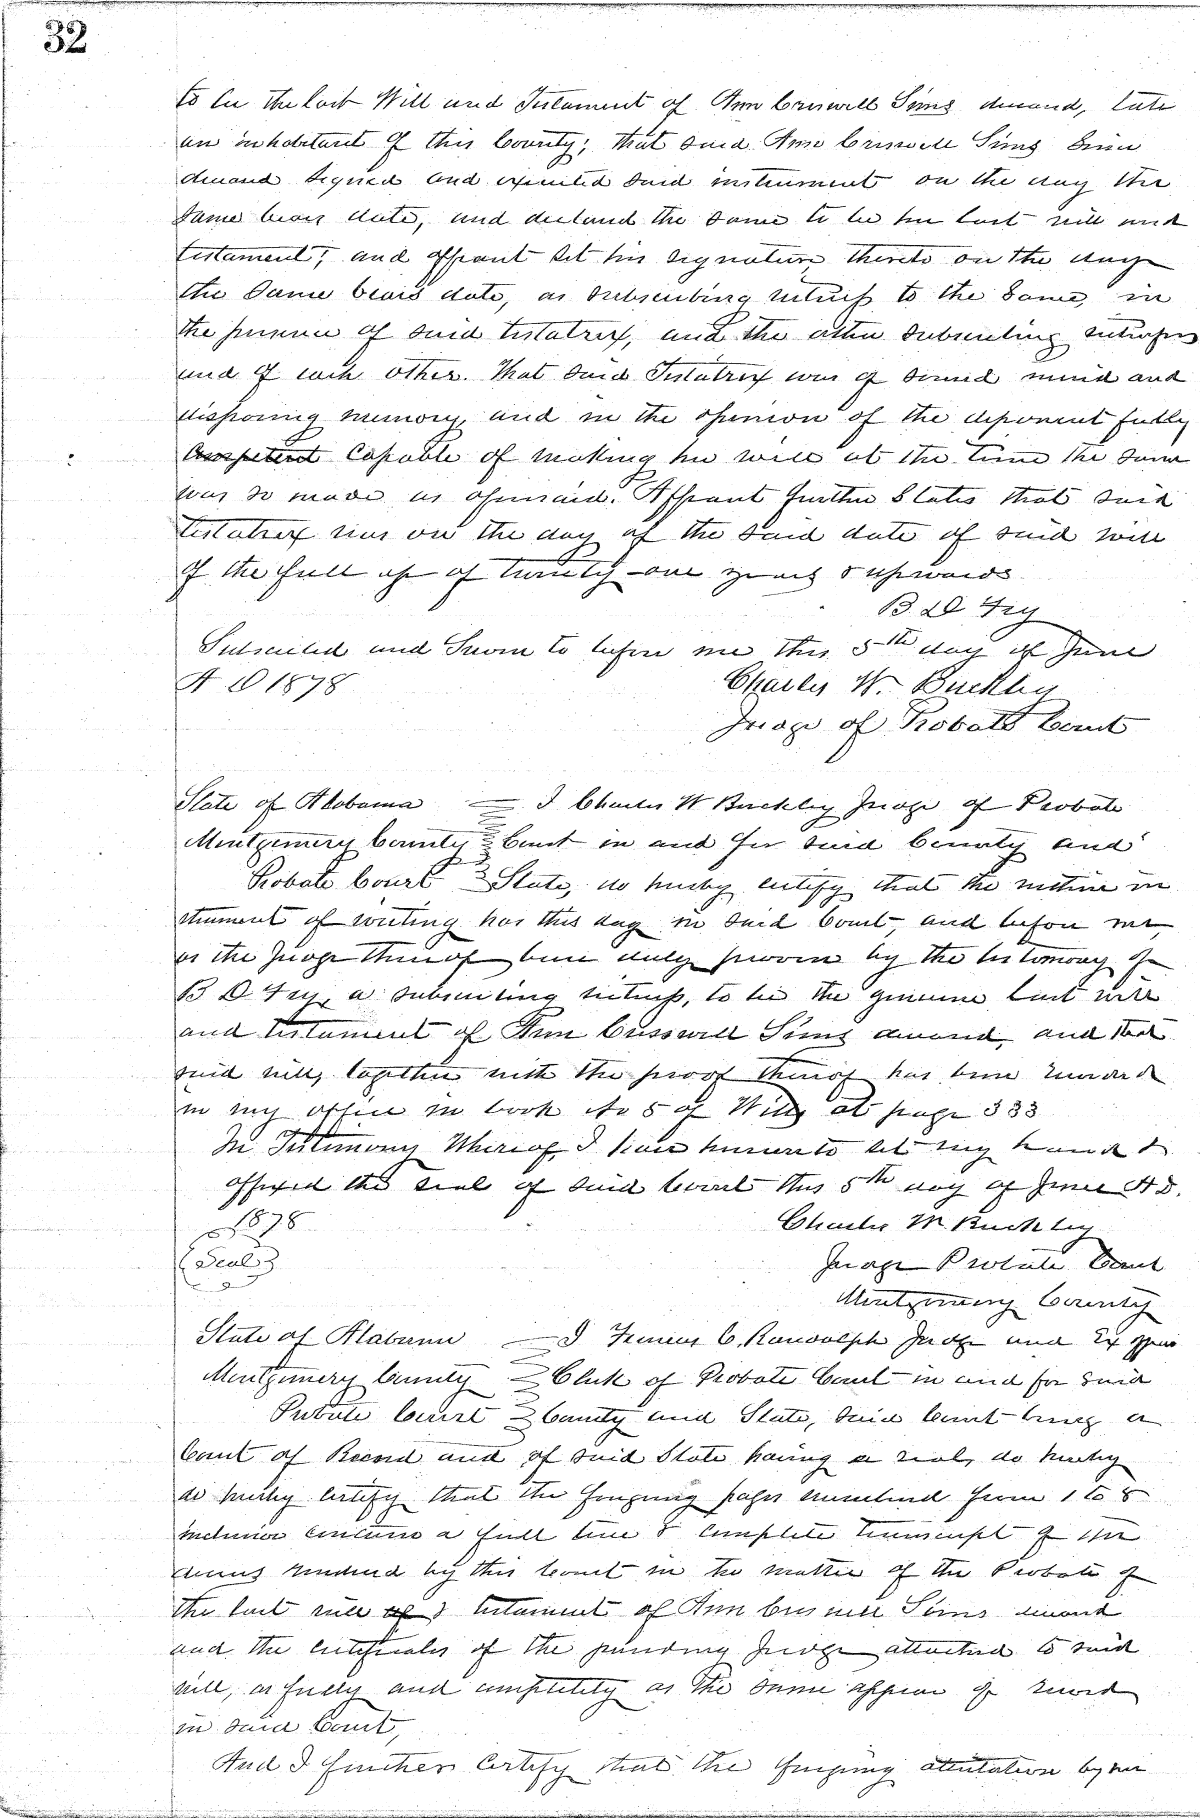 32
to be the last Will and Testament of Ann Criswell Sims deceased, late
an inhabitant of this County; that said Ann Criswell Sims since
deceased signed and executed said instrument on the day the
same bears date, and declared the same to be her last will and
testament; and affiant set his signature thereto on the day
the same bears date, as subscribing witness to the same, in
the presence of said testatrix, and the other subscribing witnesses
and of each other. That said Testatrix was of sound mind and
disposing memory, and in the opinion of the deponent fully
competent capable of making her will at the time the same
was so made as aforesaid. Affiant further States that said
testatrix was on the day of the said date of said will
of the full age of twenty-one years & upwards
B D Fry
Subscribed and Sworn to before me this 5th day of June
A D 1878 Charles W. Buckley
Judge of Probate Court
State of Alabama I Charles W Buckley Judge of Probate
Montgomery County Court in and for said County and
Probate Court State, do hereby certify that the within in
strument of writing has this day in said Court, and before me,
as the Judge thereof been duly proven by the testimony of
B D Fry, a subscribing witness, to be the genuine last will
and testament of Ann Crisswell Sims deceased, and that
said will, together with the proof thereof has been recorded
in my office in book No 5 of Wills at page 333
In Testimony Whereof, I have hereunto set my hand &
affixed the seal of said Court this 5th day of June A D.
1878 Charles W. Buckley
(Seal) Judge Probate Court
Montgomery County
State of Alabama I Francis C. Randolph Judge and Ex officio
Montgomery County Clerk of Probate Court in and for said
Probate Court County and State, said Court being a
Court of Record and of said State having a seal, do hereby
do hereby certify that the foregoing pages numbered from 1 to 8
inclusive contains a full true & complete transcript of the
decrees rendered by this Court in the matter of the Probate of
the last will of & testament of Ann Criswell Sims deceased
and the certificates of the presiding Judge attached to said
will, as fully and completely as the same appear of record
in said Court,
And I further certify that the foregoing attestation by me